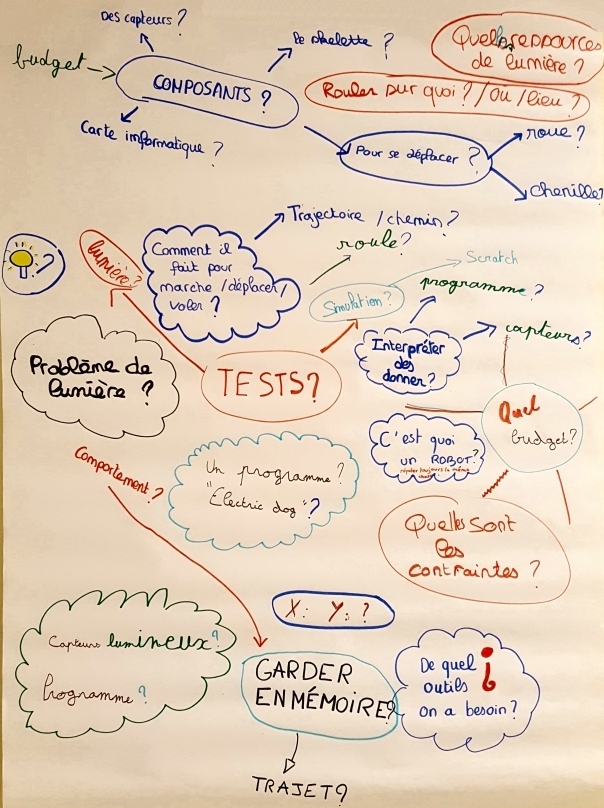 Des capteurs ?
Le skelette ?
Quelles ressources
de lumière ?
budget
COMPOSANTS ?
Rouler sur quoi ? / Où / lieu ?
Carte imformatique ?
Pour se déplacer ?
roue ?
chenille ?
Trajectoire / chemin ?
roule ?
lumière ?
Comment il
fait pour
marche / déplacer /
voler ?
?
Scratch
Simulation ?
programme ?
capteurs ?
Interpréter
des
donner ?
Problème de
lumière ?
TESTS ?
Quel
budget ?
C'est quoi
un ROBOT ?
répéter toujours la même
Comportement ?
Un programme ?
"Électric dog" ?
Quelles sont
les
contraintes ?
X : Y : ?
Capteurs lumineux ?
Programme ?
GARDER
EN MÉMOIRE ?
De quel
outils
on a besoin ?
TRAJET ?